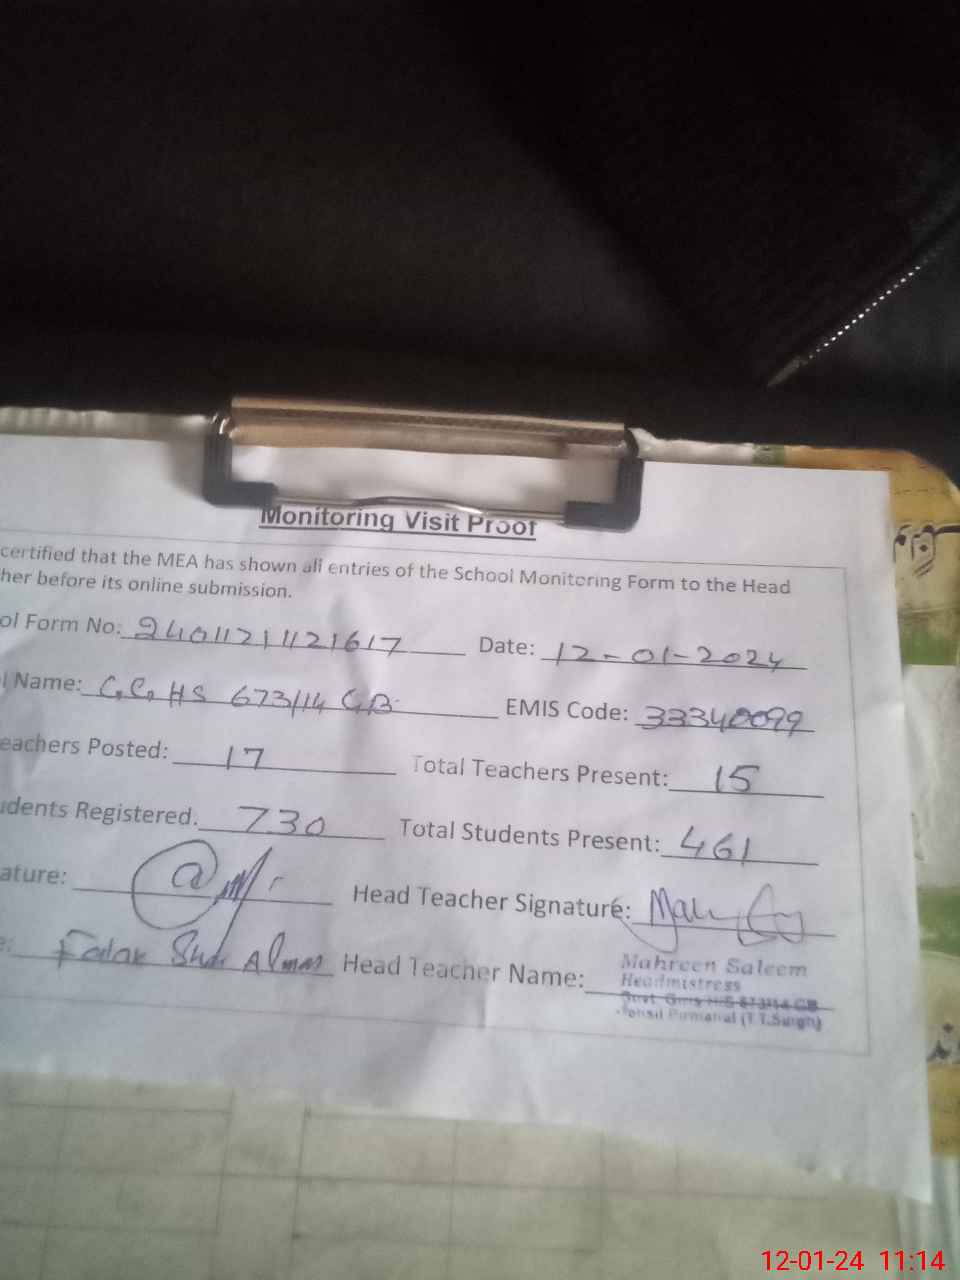 Monitoring Visit Proof
certified that the MEA has shown all entries of the School Monitoring Form to the Head
her before its online submission.
ol Form No: 2401121121617 Date: 12-01-2024
l Name: G.G.HS 673/14 GB EMIS Code: 33340099
eachers Posted: 17 Total Teachers Present: 15
udents Registered. 730 Total Students Present: 461
ature: Head Teacher Signature:
e: Almas Head Teacher Name:
Mahreen Saleem
Headmistress
Govt. Girls H/S 673/14 GB
(T.T.Singh)
12-01-24 11:14